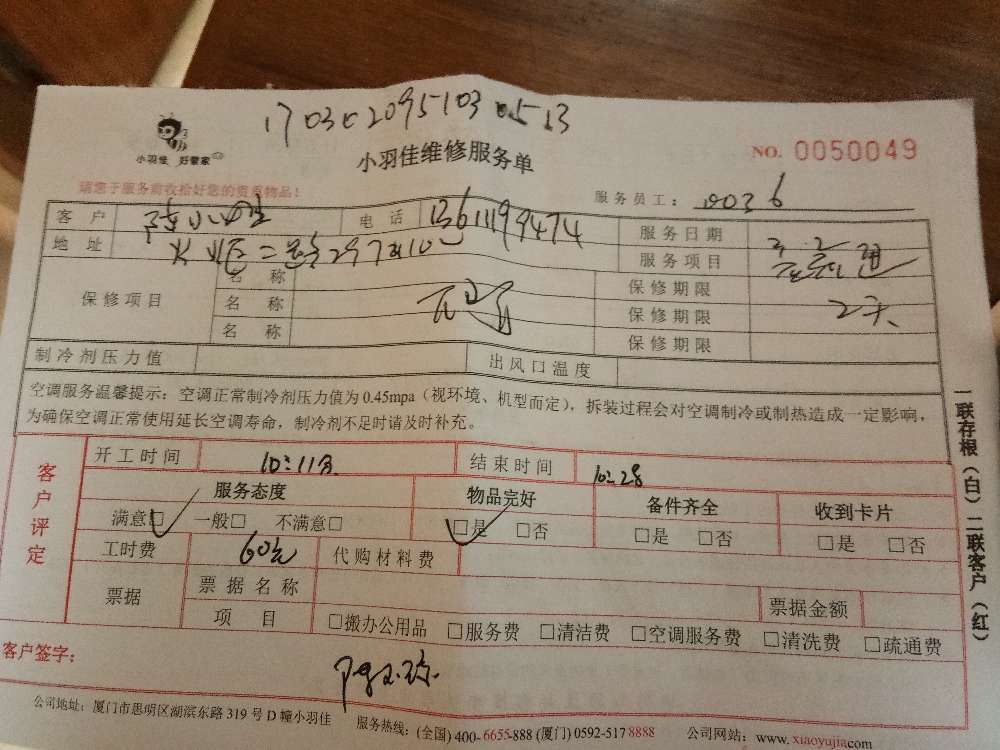 17030209510300513
小羽佳 好管家
小羽佳维修服务单
NO. 0050049
请您于服务前收拾好您的贵重物品！
服务员工：
客户 电话 13611199474 服务日期
地址 服务项目
保修项目 名称 保修期限
名称 保修期限 2天
名称 保修期限
制冷剂压力值 出风口温度
空调服务温馨提示：空调正常制冷剂压力值为0.45mpa（视环境、机型而定），拆装过程会对空调制冷或制热造成一定影响，
为确保空调正常使用延长空调寿命，制冷剂不足时请及时补充。
一联存根（白）二联客户（红）
客户评定
开工时间 10:11分 结束时间 10:28
服务态度 物品完好 备件齐全 收到卡片
满意□ 一般□ 不满意□ □是 □否 □是 □否 □是 □否
工时费 60元 代购材料费
票据 票据名称 票据金额
项目 □搬办公用品 □服务费 □清洁费 □空调服务费 □清洗费 □疏通费
客户签字：
公司地址：厦门市思明区湖滨东路319号D幢小羽佳 服务热线：(全国) 400-6655-888 (厦门) 0592-517 8888 公司网站：www.xiaoyujia.com